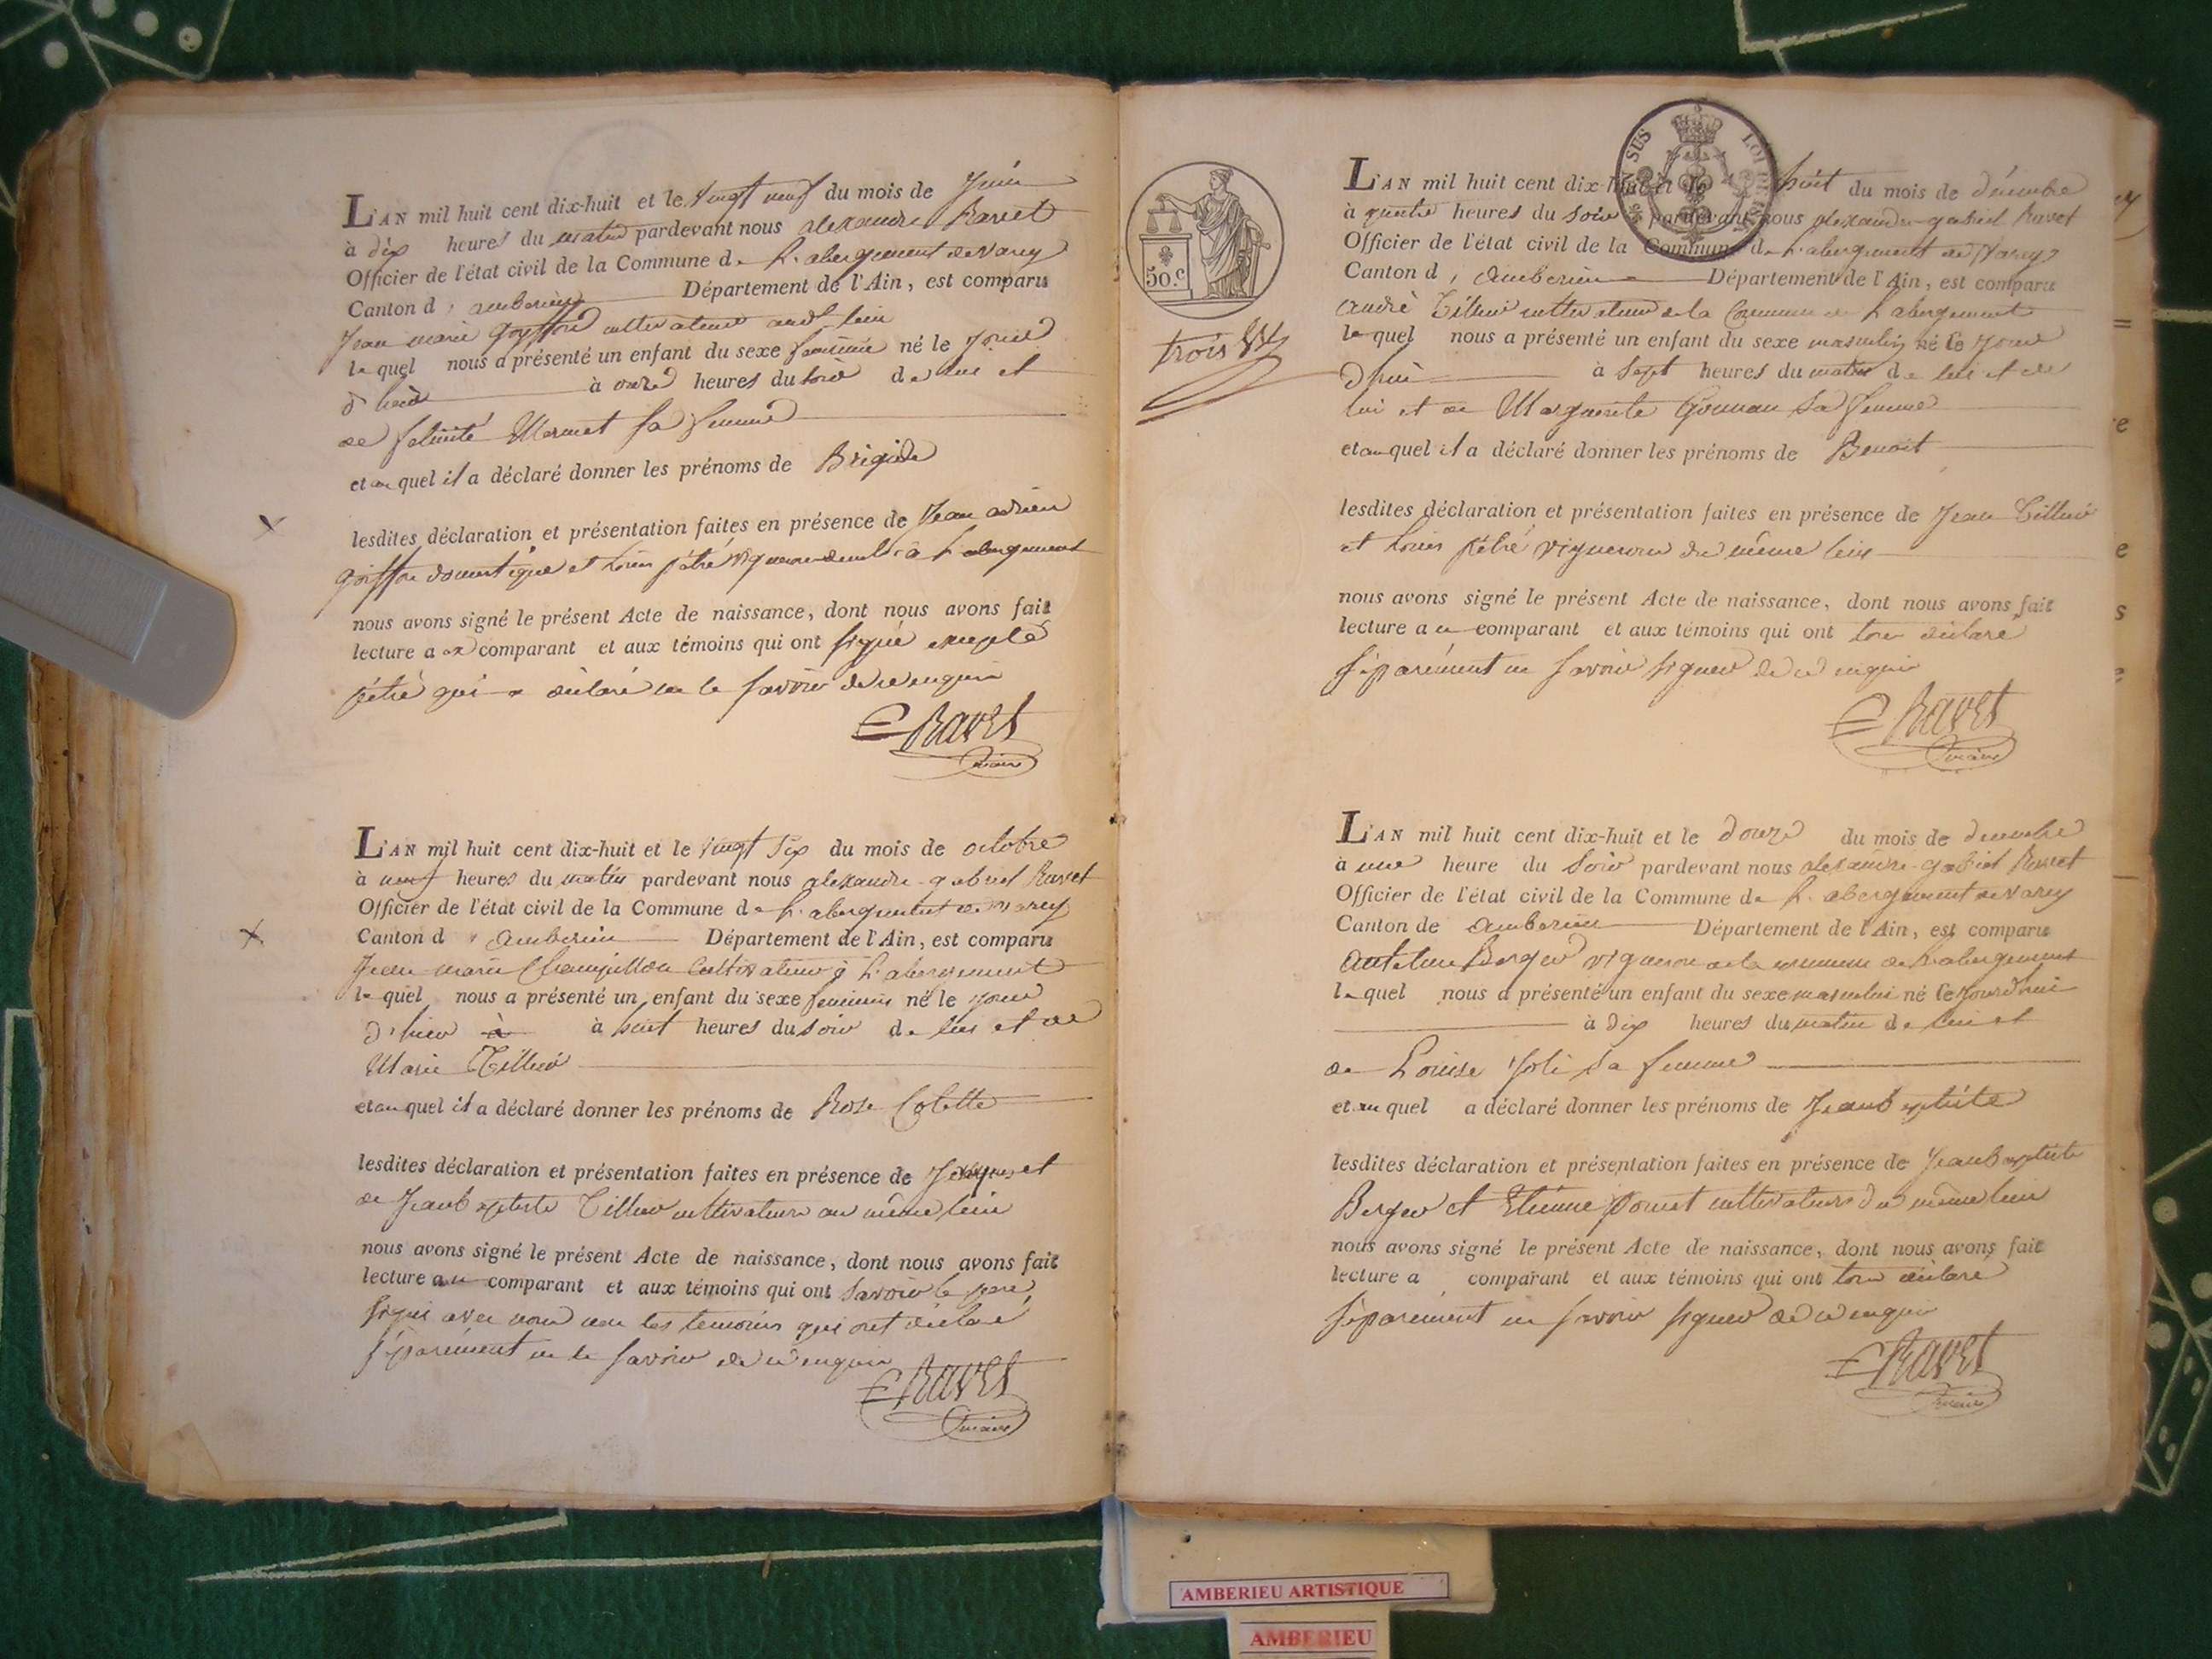 L'AN mil huit cent dix-huit et le vingt neuf du mois de Juin
à dix heures du matin pardevant nous alexandre Ravet
Officier de l'état civil de la Commune de L'abergement de varey
Canton d'amberieu Département de l'Ain, est comparu
Jean marie Goyffon cultivateur audt lieu
lequel nous a présenté un enfant du sexe feminin né le jour
d'hier à onze heures du soir de lui et
de felicité Mermet sa femme
et auquel il a déclaré donner les prénoms de Brigide
lesdites déclaration et présentation faites en présence de Jean adrien
goiffon domestique et Louis pétré vigneron à L'abergement
nous avons signé le présent Acte de naissance, dont nous avons fait
lecture au comparant et aux témoins qui ont signé excepté
pétré qui a déclaré ne le savoir de ce enquis
Ravet
maire
L'AN mil huit cent dix-huit et le vingt six du mois de octobre
à neuf heures du matin pardevant nous alexandre-gabriel Ravet
Officier de l'état civil de la Commune de L'abergement de varey
Canton d'amberieu Département de l'Ain, est comparu
Jean marie Cultivateur à L'abergement
lequel nous a présenté un enfant du sexe feminin né le jour
d'hier à à huit heures du soir de lui et de
Marie Tillier
et auquel il a déclaré donner les prénoms de Rose Colette
lesdites déclaration et présentation faites en présence de Jacques et
de Jeanbaptiste Tillier cultivateurs au même lieu
nous avons signé le présent Acte de naissance, dont nous avons fait
lecture au comparant et aux témoins qui ont savoir le pere
signé avec nous non les temoins qui ont déclaré
séparément ne le savoir de ce enquis
Ravet
maire
50.c
trois
SUS LOI
L'AN mil huit cent dix-huit et le huit du mois de décembre
à quatre heures du soir pardevant nous alexandre-gabriel Ravet
Officier de l'état civil de la Commune de L'abergement de Varey
Canton d'amberieu Département de l'Ain, est comparu
andré Tillier cultivateur de la Commune de L'abergement
lequel nous a présenté un enfant du sexe masculin né le jour
d'hui à sept heures du matin de lui et de
lui et de Marguerite sa femme
et auquel il a déclaré donner les prénoms de Benoit
lesdites déclaration et présentation faites en présence de Jean Tillier
et Louis pétré vignerons du même lieu
nous avons signé le présent Acte de naissance, dont nous avons fait
lecture au comparant et aux témoins qui ont tous déclaré
séparément ne savoir signer de ce enquis
Ravet
maire
L'AN mil huit cent dix-huit et le douze du mois de decembre
à une heure du soir pardevant nous alexandre-gabriel Ravet
Officier de l'état civil de la Commune de L'abergement de varey
Canton de amberieu Département de l'Ain, est comparu
antelme Berger vigneron de la commune de L'abergement
lequel nous a présenté un enfant du sexe masculin né le jourd'hui
à dix heures du matin de lui et
de Louise Joli sa femme
et au quel a déclaré donner les prénoms de Jeanbaptiste
lesdites déclaration et présentation faites en présence de Jeanbaptiste
Berger et Etienne cultivateurs du même lieu
nous avons signé le présent Acte de naissance, dont nous avons fait
lecture a comparant et aux témoins qui ont tous déclaré
séparément ne savoir signer de ce enquis
Ravet
maire
AMBERIEU ARTISTIQUE
AMBERIEU